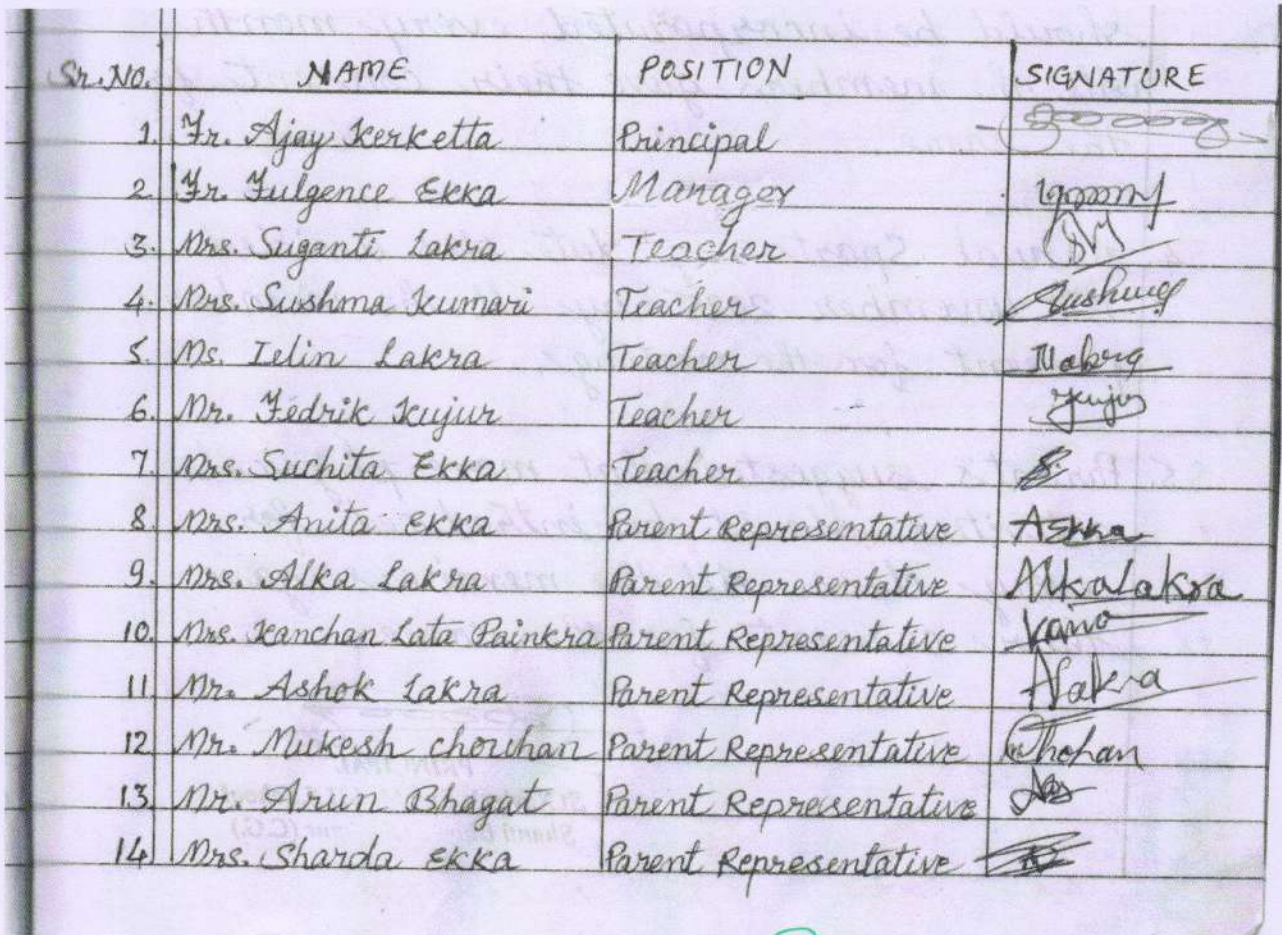 Sr. NO. NAME POSITION SIGNATURE
1. Fr. Ajay Kerketta Principal
2. Fr. Fulgence Ekka Manager
3. Mrs. Suganti Lakra Teacher
4. Mrs. Sushma Kumari Teacher
5. Ms. Ielin Lakra Teacher
6. Mr. Fedrik Kujur Teacher Kujur
7. Mrs. Suchita Ekka Teacher
8. Mrs. Anita Ekka Parent Representative AEkka
9. Mrs. Alka Lakra Parent Representative AlkaLakra
10. Mrs. Kanchan Lata Painkra Parent Representative
11. Mr. Ashok Lakra Parent Representative ALakra
12 Mr. Mukesh chouhan Parent Representative
13 Mr. Arun Bhagat Parent Representative
14 Mrs. Sharda Ekka Parent Representative